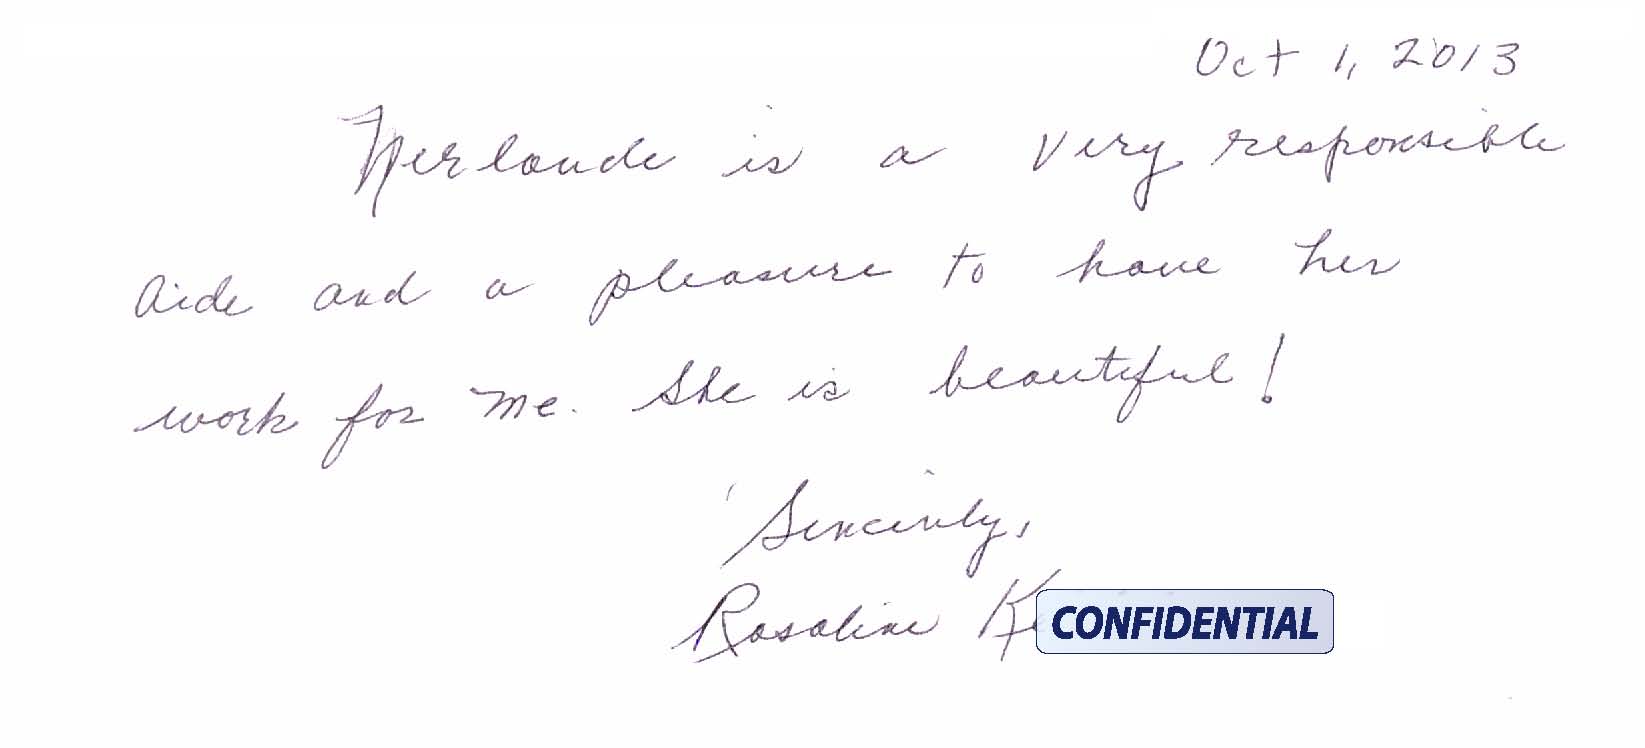 Oct 1, 2013
Nerlande is a very responsible
aide and a pleasure to have her
work for me. She is beautiful!
Sincerely,
Rosaline
CONFIDENTIAL